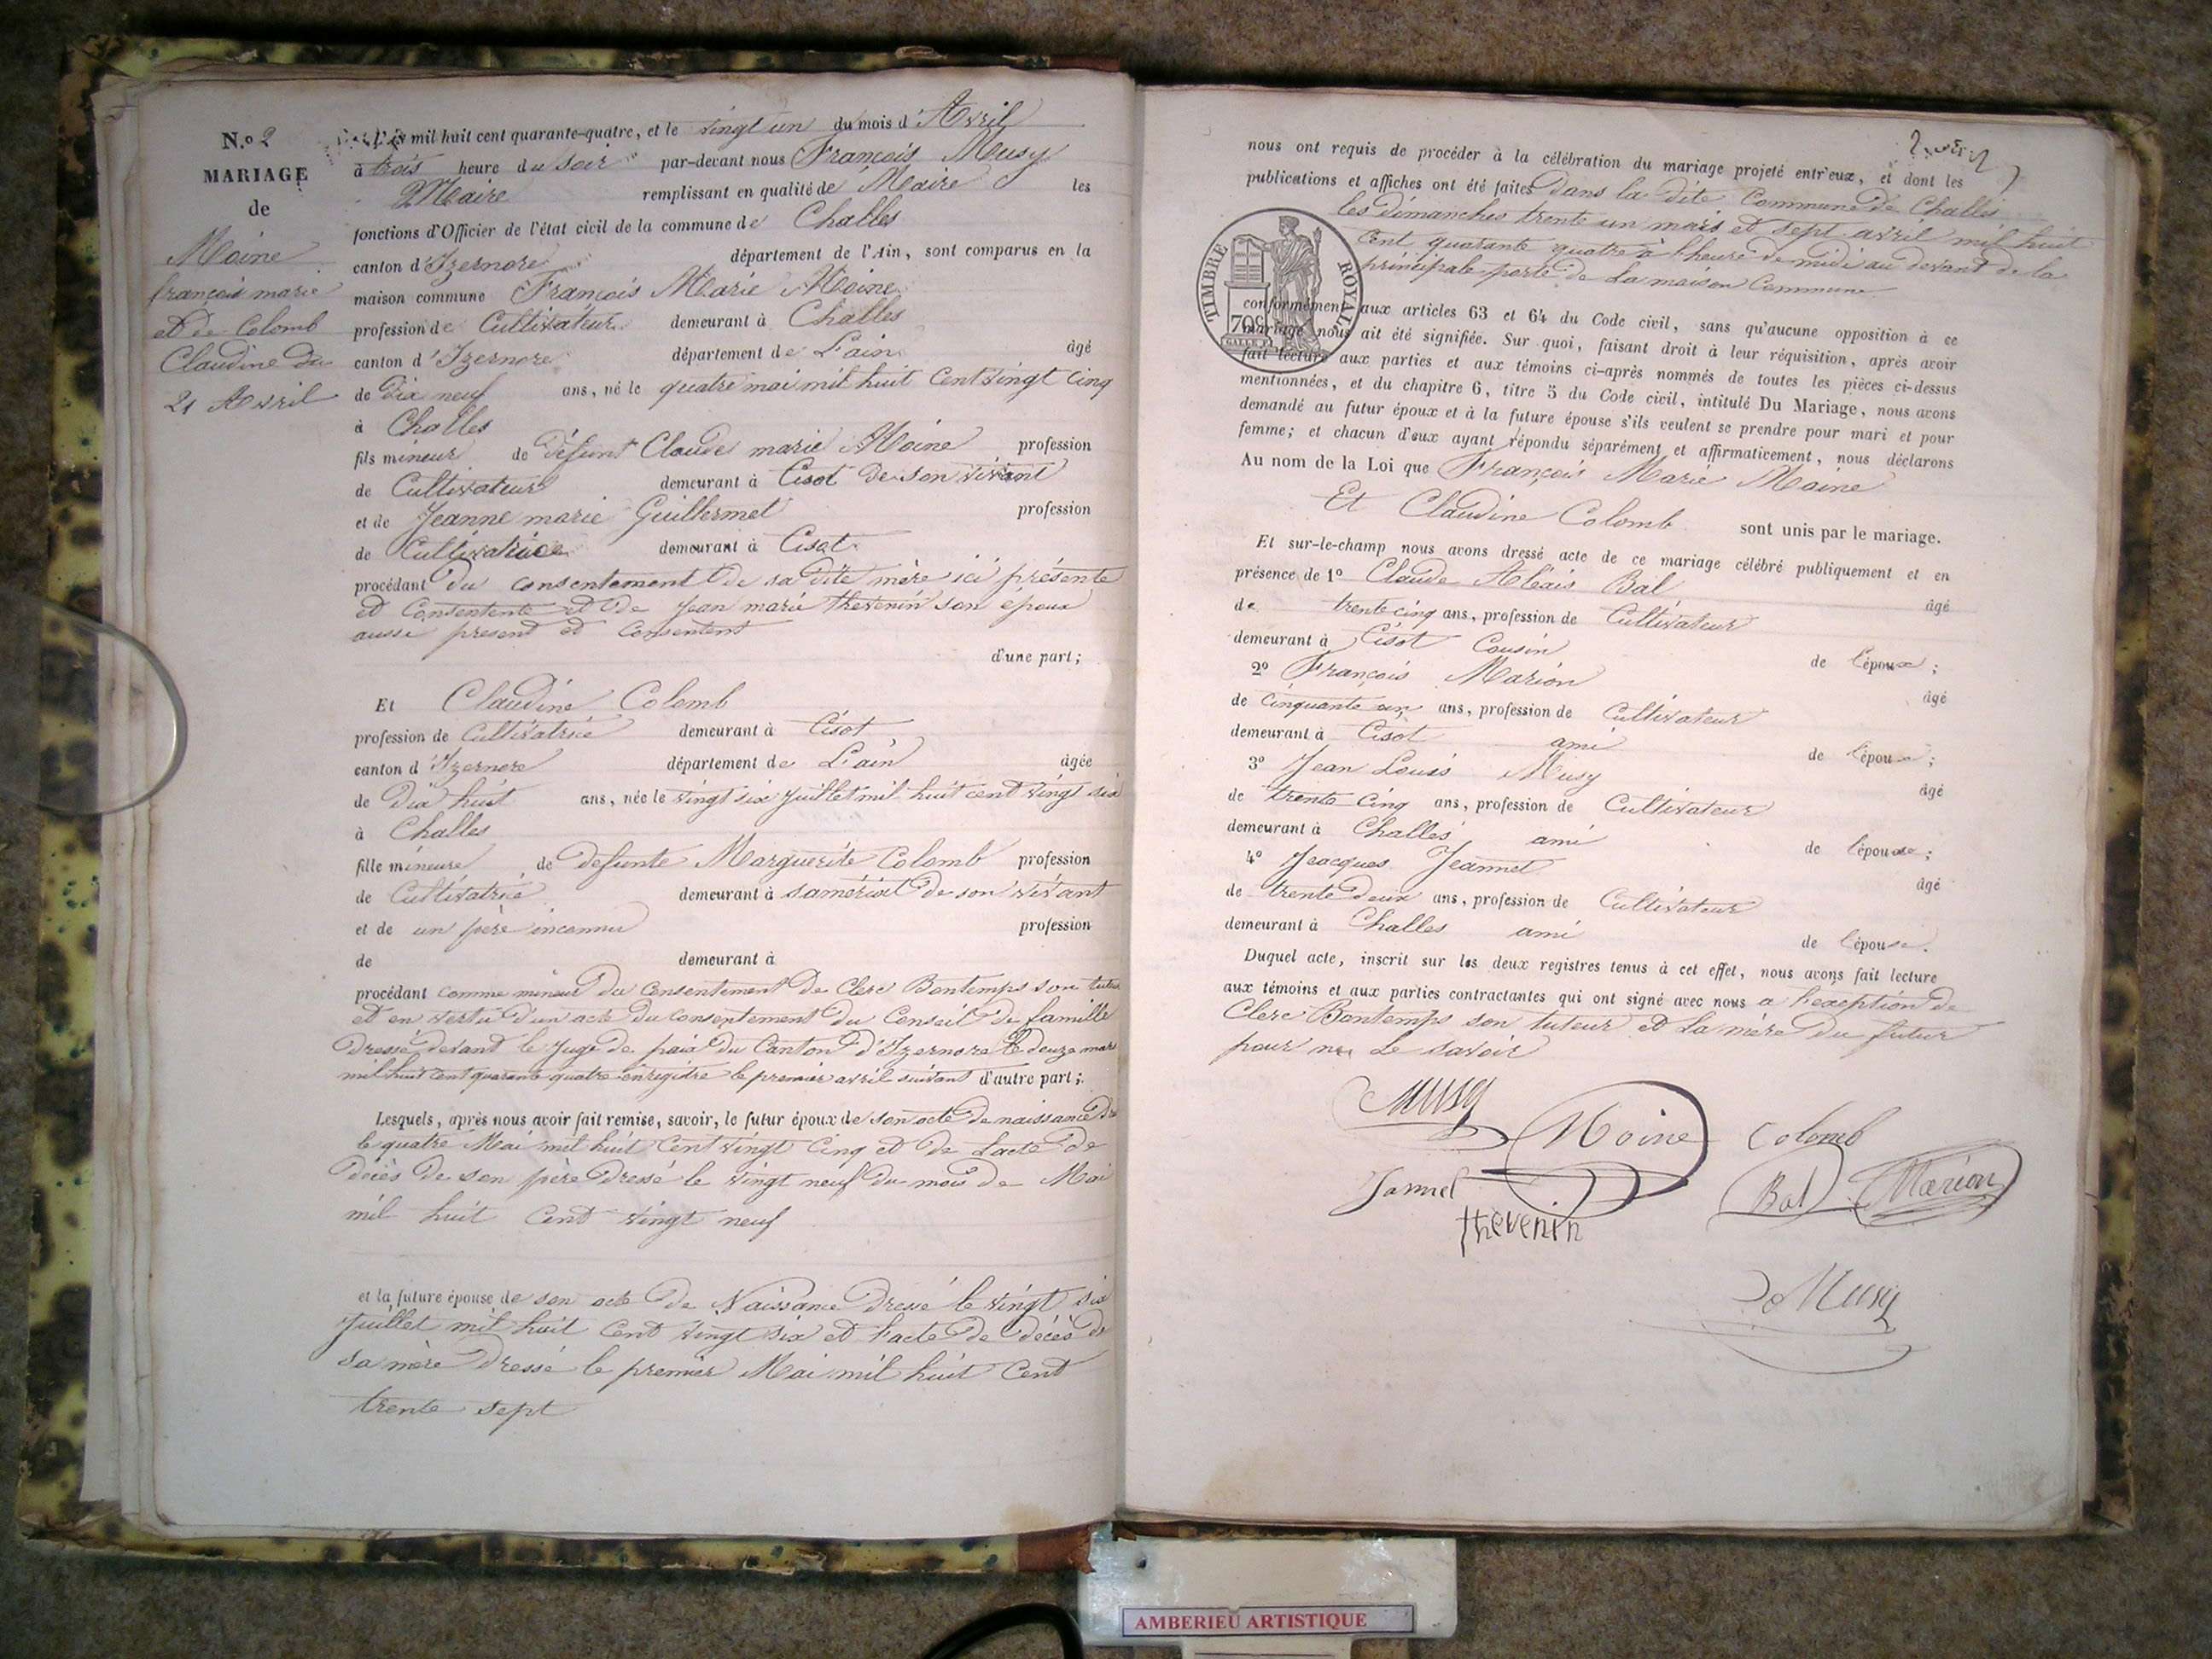 N.o 2
MARIAGE
de
Moine
françois marie
et de Colomb
Claudine du
21 Avril
mil huit cent quarante-quatre, et le vingt un du mois d'Avril
à trois heure du soir par-devant nous François Musy
Maire remplissant en qualité de Maire les
fonctions d'Officier de l'état civil de la commune de Challes
canton d'Izernore département de l'Ain, sont comparus en la
maison commune François Marie Moine
profession de Cultivateur demeurant à Challes
canton d'Izernore département de L'ain âgé
de Dix neuf ans, né le quatre mai mil huit Cent vingt Cinq
à Challes
fils mineur de défunt Claude marie Moine profession
de Cultivateur demeurant à Cisot de son vivant
et de Jeanne marie Guillermet profession
de Cultivatrice demeurant à Cisot
procédant du consentement de sa dite mère ici présente
et Consentente et de Jean marie thevenin son époux
aussi present et Consentent
d'une part;
Et Claudine Colomb
profession de Cultivatrice demeurant à Cisot
canton d'Izernore département de L'ain âgée
de Dix huit ans, née le vingt six Juillet mil huit cent vingt six
à Challes
fille mineure de defunte Marguerite Colomb profession
de Cultivatrice demeurant à samériat de son vivant
et de un père inconnu profession
de demeurant à
procédant comme mineur du Consentement de Clerc Bontemps son tuteur
et en vertu d'un acte du consentement du Conseil de famille
Dressé devant le Juge de paix du Canton d'Izernore le douze mars
mil huit cent quarante quatre enregistre le premier avril suivant d'autre part;
Lesquels, après nous avoir fait remise, savoir, le futur époux de son acte de naissance
le quatre Mai mil huit Cent vingt Cinq et de L'acte de
décès de son père Dressé le vingt neuf du mois de Mai
mil huit Cent vingt neuf
et la future épouse de son acte de Naissance Dressé le vingt six
Juillet mil huit Cent vingt six et L'acte de décès de
sa mère Dressé le premier Mai mil huit Cent
trente sept
nous ont requis de procéder à la célébration du mariage projeté entr'eux, et dont les
publications et affiches ont été faites Dans la dite Commune de Challes
les dimanches trente un mars et sept avril mil huit
Cent quarante quatre à l'heure de midi au devant de la
principale porte de La maison Commune
TIMBRE ROYAL
70c
conformément aux articles 63 et 64 du Code civil, sans qu'aucune opposition à ce
mariage nous ait été signifiée. Sur quoi, faisant droit à leur réquisition, après avoir
fait lecture aux parties et aux témoins ci-après nommés de toutes les pièces ci-dessus
mentionnées, et du chapitre 6, titre 5 du Code civil, intitulé Du Mariage, nous avons
demandé au futur époux et à la future épouse s'ils veulent se prendre pour mari et pour
femme; et chacun d'eux ayant répondu séparément et affirmativement, nous déclarons
Au nom de la Loi que François Marie Moine
Et Claudine Colomb sont unis par le mariage.
Et sur-le-champ nous avons dressé acte de ce mariage célébré publiquement et en
présence de 1o Claude Bal âgé
de trente cinq ans, profession de Cultivateur
demeurant à Cisot Cousin de l'époux;
2o François Marion âgé
de Cinquante un ans, profession de Cultivateur
demeurant à Cisot ami de l'époux;
3o Jean Louis Musy âgé
de trente Cinq ans, profession de Cultivateur
demeurant à Challes ami de l'épouse;
4o Jeacques Jeannet âgé
de trente Deux ans, profession de Cultivateur
demeurant à Challes ami de l'épouse.
Duquel acte, inscrit sur les deux registres tenus à cet effet, nous avons fait lecture
aux témoins et aux parties contractantes qui ont signé avec nous a l'exception de
Clerc Bontemps son tuteur et La mère du futur
pour ne Le savoir
Musy Moine Colomb
Bal Marion
thevenin
Musy
AMBERIEU ARTISTIQUE